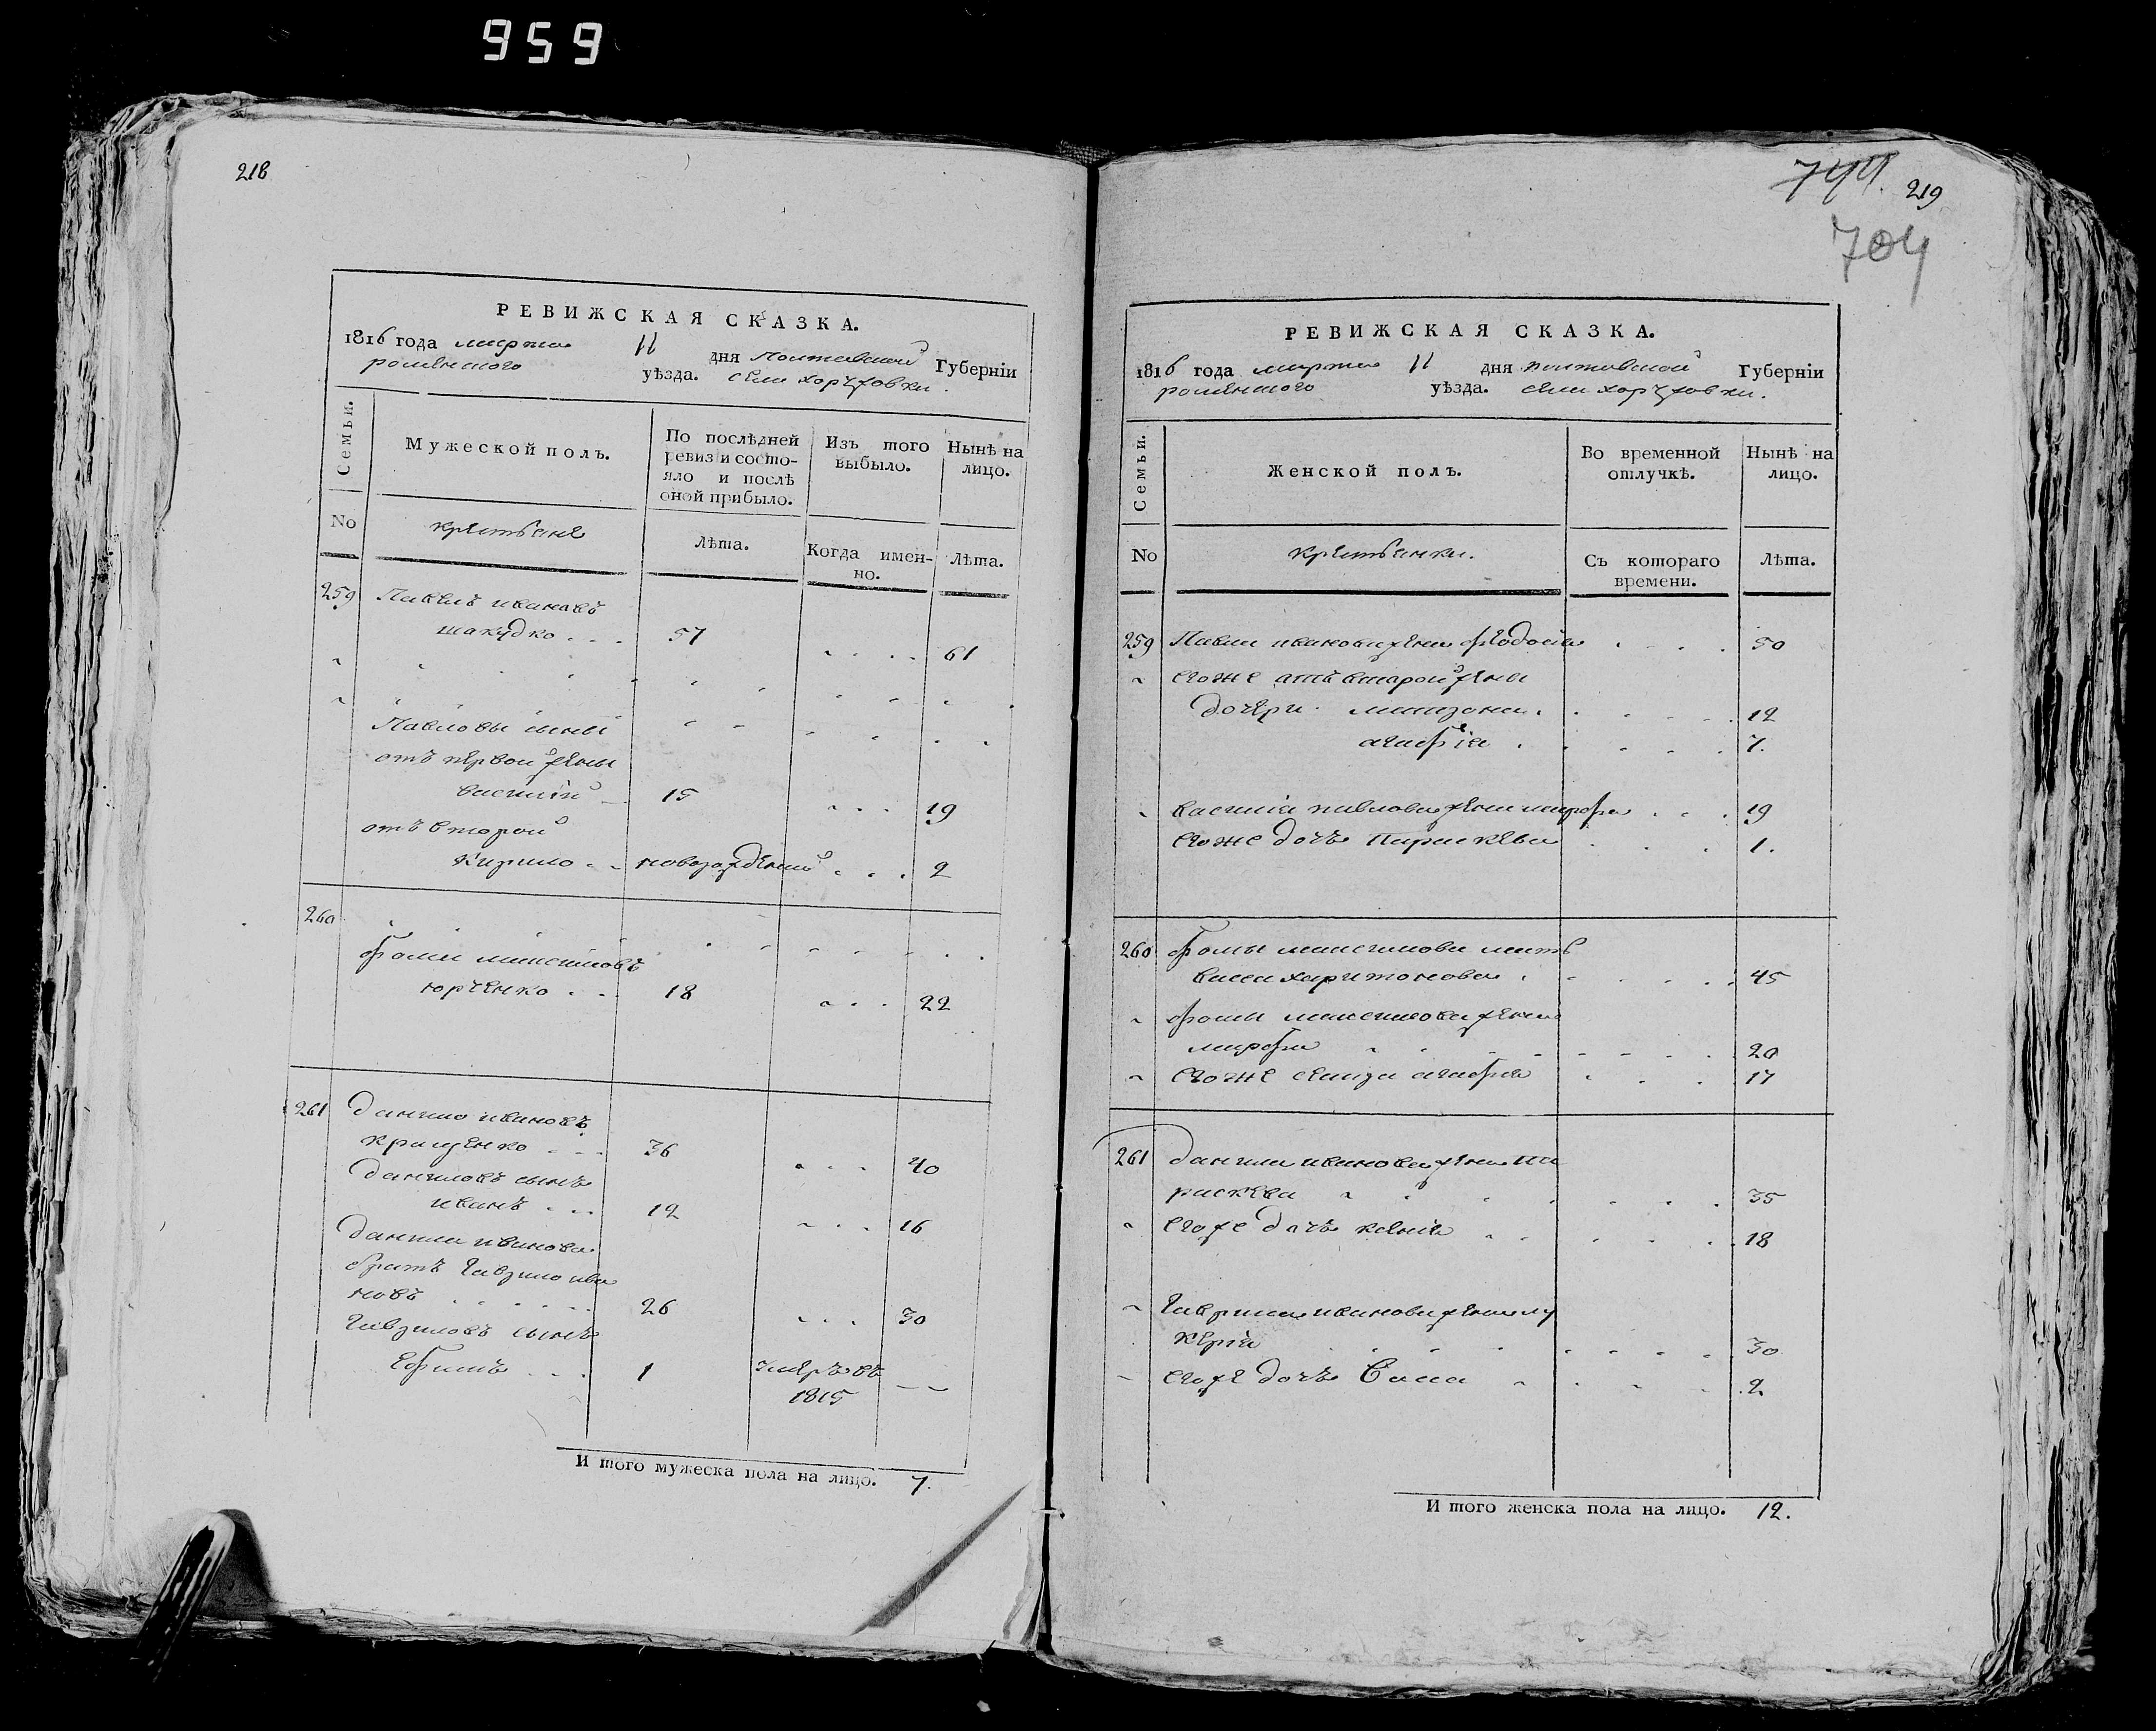 959
218
РЕВИЖСКАЯ СКАЗКА.
1816 года марта 11 дня полтавской Губерніи
роменского уѣзда. села хоружовки.
Семьи.
Мужеской полъ.
По послѣдней ревизіи состояло и послѣ оной прибыло.
Изъ того выбыло.
Нынѣ на лицо.
No
крестьяне
лѣта.
Когда именно.
Лѣта.
259 Павелъ ивановъ
шакудко 57 61
Павловы сыны
отъ первой жены
василій 15 19
отъ второй
кирило новорожденій 2
260
фома максимовъ
юрченко 18 22
261 данило ивановъ
кращенко 36 40
даниловъ сынъ
иванъ 12 16
данила иванова
братъ гаврило ива
новъ 26 30
гавриловъ сынъ
ефимъ 1 умеръ въ
1815
И того мужеска пола на лицо. 7.
744. 219
704
РЕВИЖСКАЯ СКАЗКА.
1816 года марта 11 дня полтавской Губерніи
роменского уѣзда. села хоружовки.
Семьи.
Женской полъ.
Во временной отлучкѣ.
Нынѣ на лицо.
No
крестьянки.
Съ котораго времени.
Лѣта.
259 Павла иванова жена феодосія 50
егоже отъ второй жены
дочери 12
агафія 7.
василія павлова жена марфа 19
егоже дочь Параскева 1.
260 фомы максимова мать
васса харитонова 45
фомы максимова жена
марфа 20
егоже сестра агафія 17
261 данила иванова жена па
раскева 35
егоже дочь ксенія 18
гаврила иванова жена лу
керія 30
егоже дочь Васса 2
И того женска пола на лицо. 12.